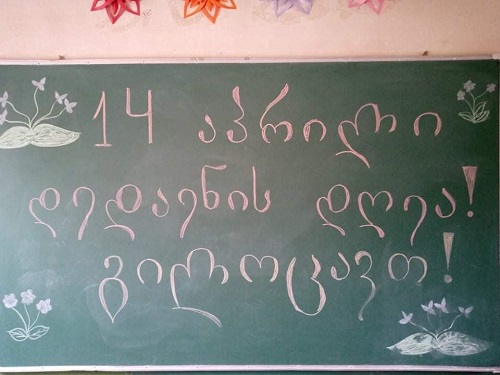 14 აპრილი
დედაენის დღეა!
გილოცავთ!